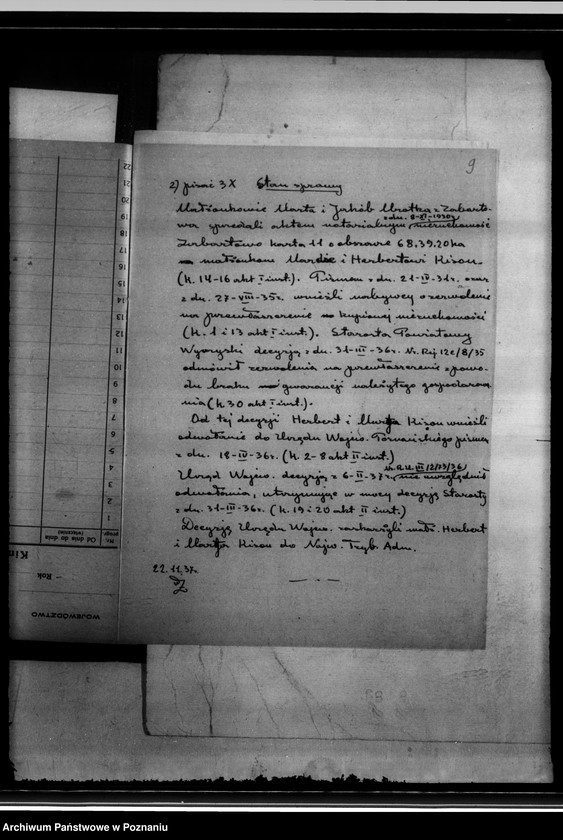 9
2) pisać 3 X Stan sprawy
Małżonkowie Marta i Jakób z
z dn. 6-XI-1930 r.
sprzedali aktem notarialnym nieruchomość
karta 11 o obszarze 68.39.20 ha
małżonkom i Herbertowi Kison
(k. 14-16 akt I inst.). Pismem z dn. 21-IV-31 r. oraz
z dn. 27-VIII-35 r. wnieśli nabywcy o zezwolenie
na przewłaszczenie kupionej nieruchomości
(k. 1 i 13 akt I inst.). Starosta Powiatowy
Wyrzyski decyzją z dn. 31-III-36 r. Nr. Rej 12c/8/35
odmówił zezwolenia na przewłaszczenie z powo-
du braku gwarancji należytego gospodarowa-
nia (k 30 akt I inst.).
Od tej decyzji Herbert i Kison wnieśli
odwołanie do Urzędu Wojew. Poznańskiego pismem
z dn. 18-IV-36 r. (k. 2-8 akt II inst.)
Urząd Wojew. decyzją z 6-II-37 r. nie uwzględnił
odwołania, utrzymując w mocy decyzję Starosty
z dn. 31-III-36 r. (k. 19 i 20 akt II inst.)
Decyzję Urzędu Wojew. zaskarżyli małż. Herbert
i Kison do Najw. Tryb. Adm.
22.11.37.
22
21
20
19
18
17
16
15
14
13
12
11
10
9
8
7
6
5
4
3
2
1
Od dnia do dnia
(włącznie)
Nr.
– Rok
WOJEWÓDZTWO
Archiwum Państwowe w Poznaniu